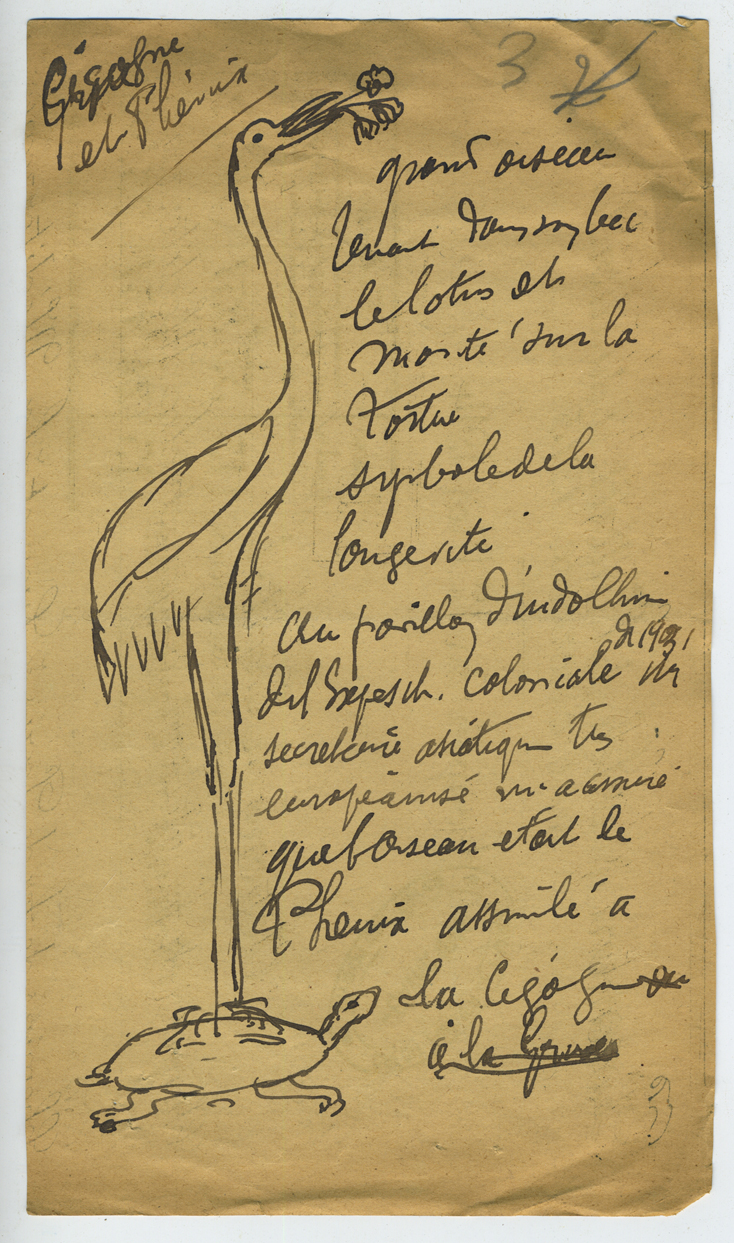 Cigogne
et Phénix
3
grand oiseau
tenant dans son bec
le lotus et
monté sur la
tortue
symbole de la
longevité
Au pavillon d'indoChine
de 1931
de l'Exposit. coloniale un
secretaire asiatique tres
européanisé m'a assuré
que l'oiseau etait le
Phenix assimilé a
la Cigógne ou
à la Grue
3